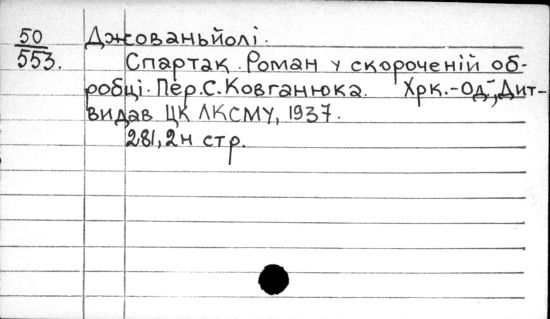 50 Джованьйолі.
553. Спартак. Роман у скороченій об-
робці. Пер. С. Ковганюка. Хрк.-Од., Дит-
видав ЦК ЛКСМУ, 1937.
281, 2н стр.